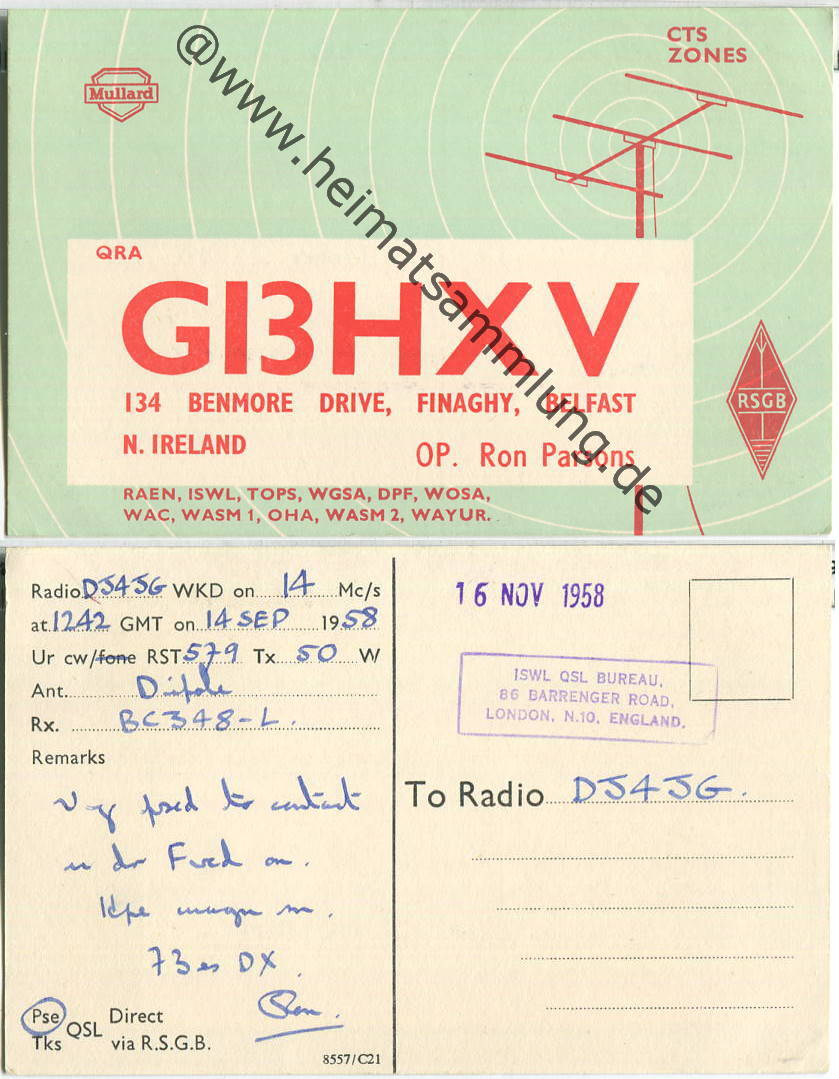 CTS
ZONES
Mullard
@www.heimatsammlung.de
QRA
GI3HXV
134 BENMORE DRIVE, FINAGHY, BELFAST
N. IRELAND
OP. Ron Parsons
RSGB
RAEN, ISWL, TOPS, WGSA, DPF, WOSA,
WAC, WASM 1, OHA, WASM 2, WAYUR.
Radio DJ4JG WKD on 14 Mc/s
at 1242 GMT on 14 SEP 1958
Ur cw/fone RST 579 Tx 50 W
Ant. Dipole
Rx. BC348-L.
Remarks
Vy psed to contact
u dr Fred on.
73 es DX
Ron.
Pse
Tks
QSL
Direct
via R.S.G.B.
8557/C21
16 NOV 1958
ISWL QSL BUREAU,
86 BARRENGER ROAD,
LONDON, N.10, ENGLAND.
To Radio DJ4JG.